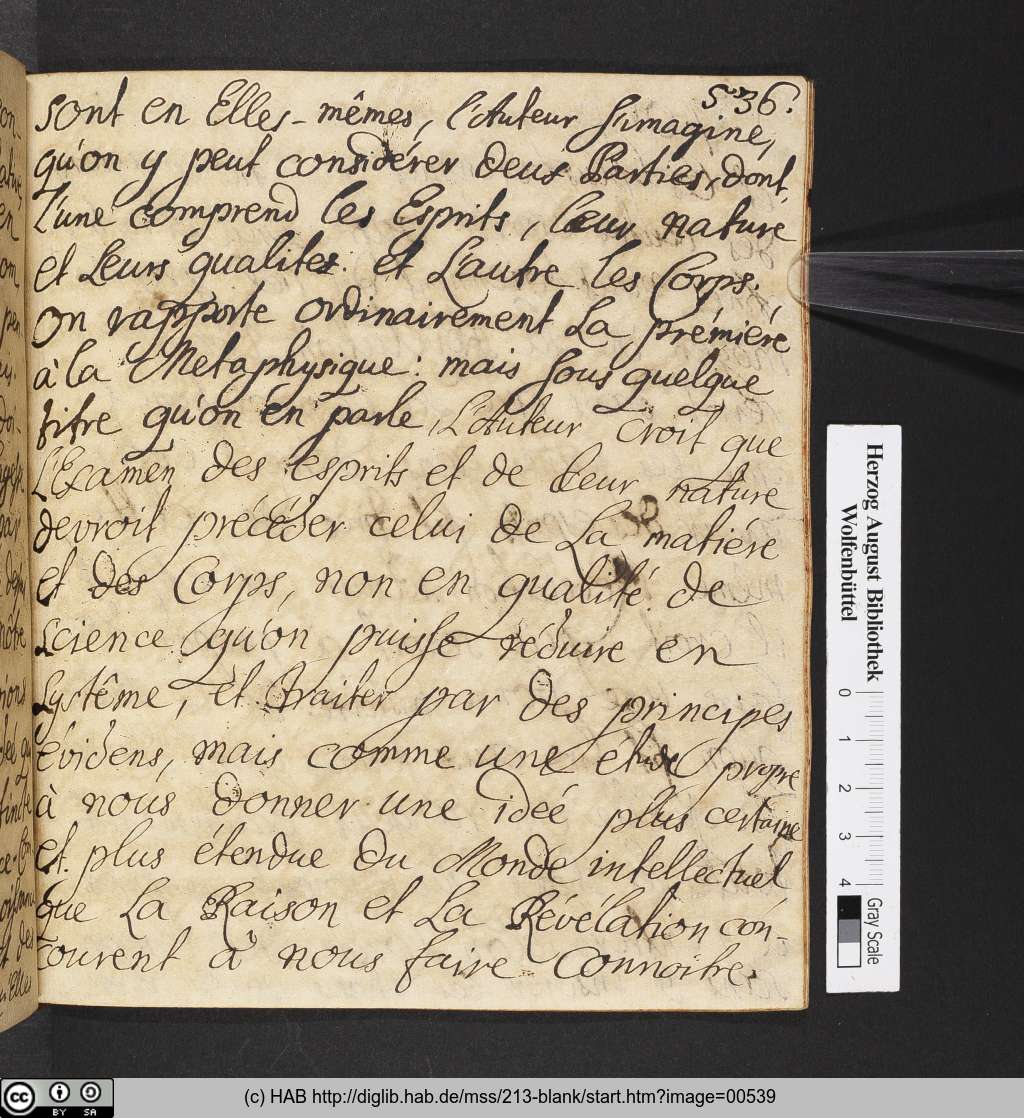 536.
sont en Elles-mêmes, l'Auteur s'imagine,
qu'on y peut considérer deux Parties, dont
L'une comprend les Esprits, leur nature
et Leurs qualites. et L'autre les Corps.
On rapporte ordinairement La prémiére
à la Metaphysique: mais sous quelque
titre qu'on en parle, L'Auteur croit que
L'Examen des esprits et de leur nature
devroit précéder celui de La matiére
et des Corps, non en qualité de
Science qu'on puisse réduire en
Systême, et Traiter par des principes
évidens, mais comme une étude propre
à nous donner une ideé plus certaine
et plus étendue du Monde intellectuel
que La Raison et La Révélation con-
courent à nous faire Connoitre.
Herzog August Bibliothek
Wolfenbüttel
0 1 2 3 4
Gray Scale
cc BY SA
(c) HAB http://diglib.hab.de/mss/213-blank/start.htm?image=00539